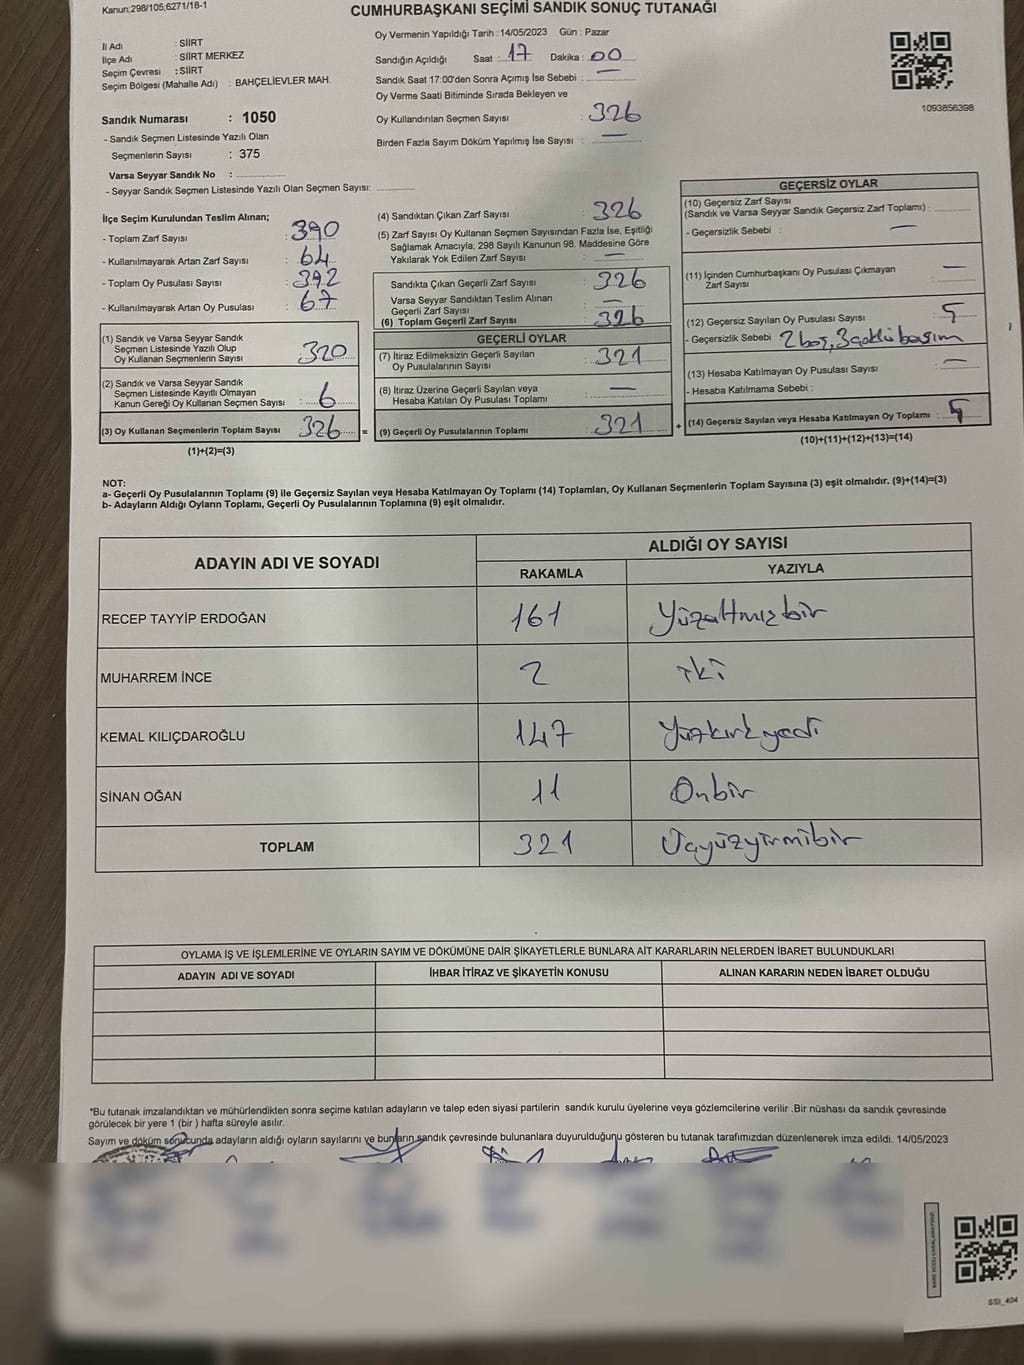 Kanun;298/105;6271/18-1
CUMHURBAŞKANI SEÇİMİ SANDIK SONUÇ TUTANAĞI
İl Adı : SİİRT
İlçe Adı : SİİRT MERKEZ
Seçim Çevresi : SİİRT
Seçim Bölgesi (Mahalle Adı) : BAHÇELİEVLER MAH.
Sandık Numarası : 1050
- Sandık Seçmen Listesinde Yazılı Olan
Seçmenlerin Sayısı : 375
Varsa Seyyar Sandık No :
- Seyyar Sandık Seçmen Listesinde Yazılı Olan Seçmen Sayısı:
Oy Vermenin Yapıldığı Tarih : 14/05/2023 Gün : Pazar
Sandığın Açıldığı Saat : 17 Dakika : 00
Sandık Saat 17:00'den Sonra Açımış İse Sebebi : —
Oy Verme Saati Bitiminde Sırada Bekleyen ve
Oy Kullandırılan Seçmen Sayısı : 326
Birden Fazla Sayım Döküm Yapılmış İse Sayısı : —
1093856398
İlçe Seçim Kurulundan Teslim Alınan;
- Toplam Zarf Sayısı : 390
- Kullanılmayarak Artan Zarf Sayısı : 64
- Toplam Oy Pusulası Sayısı : 392
- Kullanılmayarak Artan Oy Pusulası : 67
(1) Sandık ve Varsa Seyyar Sandık
Seçmen Listesinde Yazılı Olup
Oy Kullanan Seçmenlerin Sayısı : 320
(2) Sandık ve Varsa Seyyar Sandık
Seçmen Listesinde Kayıtlı Olmayan
Kanun Gereği Oy Kullanan Seçmen Sayısı : 6
(3) Oy Kullanan Seçmenlerin Toplam Sayısı 326 =
(1)+(2)=(3)
(4) Sandıktan Çıkan Zarf Sayısı : 326
(5) Zarf Sayısı Oy Kullanan Seçmen Sayısından Fazla İse, Eşitliği
Sağlamak Amacıyla; 298 Sayılı Kanunun 98. Maddesine Göre
Yakılarak Yok Edilen Zarf Sayısı : —
Sandıkta Çıkan Geçerli Zarf Sayısı : 326
Varsa Seyyar Sandıktan Teslim Alınan
Geçerli Zarf Sayısı : —
(6) Toplam Geçerli Zarf Sayısı : 326
GEÇERLİ OYLAR
(7) İtiraz Edilmeksizin Geçerli Sayılan
Oy Pusulalarının Sayısı : 321
(8) İtiraz Üzerine Geçerli Sayılan veya
Hesaba Katılan Oy Pusulası Toplamı : —
(9) Geçerli Oy Pusulalarının Toplamı : 321 +
GEÇERSİZ OYLAR
(10) Geçersiz Zarf Sayısı
(Sandık ve Varsa Seyyar Sandık Geçersiz Zarf Toplamı) :
- Geçersizlik Sebebi : —
(11) İçinden Cumhurbaşkanı Oy Pusulası Çıkmayan
Zarf Sayısı : —
(12) Geçersiz Sayılan Oy Pusulası Sayısı : 5
- Geçersizlik Sebebi : 2 boş, 3 çoklu basım
(13) Hesaba Katılmayan Oy Pusulası Sayısı : —
- Hesaba Katılmama Sebebi :
(14) Geçersiz Sayılan veya Hesaba Katılmayan Oy Toplamı : 5
(10)+(11)+(12)+(13)=(14)
NOT:
a- Geçerli Oy Pusulalarının Toplamı (9) ile Geçersiz Sayılan veya Hesaba Katılmayan Oy Toplamı (14) Toplamları, Oy Kullanan Seçmenlerin Toplam Sayısına (3) eşit olmalıdır. (9)+(14)=(3)
b- Adayların Aldığı Oyların Toplamı, Geçerli Oy Pusulalarının Toplamına (9) eşit olmalıdır.
ADAYIN ADI VE SOYADI ALDIĞI OY SAYISI
RAKAMLA YAZIYLA
RECEP TAYYİP ERDOĞAN 161 Yüzaltmışbir
MUHARREM İNCE 2 iki
KEMAL KILIÇDAROĞLU 147 Yüzkırkyedi
SİNAN OĞAN 11 Onbir
TOPLAM 321 Üçyüzyirmibir
OYLAMA İŞ VE İŞLEMLERİNE VE OYLARIN SAYIM VE DÖKÜMÜNE DAİR ŞİKAYETLERLE BUNLARA AİT KARARLARIN NELERDEN İBARET BULUNDUKLARI
ADAYIN ADI VE SOYADI İHBAR İTİRAZ VE ŞİKAYETİN KONUSU ALINAN KARARIN NEDEN İBARET OLDUĞU
*Bu tutanak imzalandıktan ve mühürlendikten sonra seçime katılan adayların ve talep eden siyasi partilerin sandık kurulu üyelerine veya gözlemcilerine verilir .Bir nüshası da sandık çevresinde
görülecek bir yere 1 (bir ) hafta süreyle asılır.
Sayım ve döküm sonucunda adayların aldığı oyların sayılarını ve bunların sandık çevresinde bulunanlara duyurulduğunu gösteren bu tutanak tarafımızdan düzenlenerek imza edildi. 14/05/2023
SSI_404